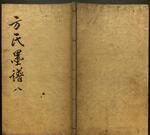 方氏墨譜 八